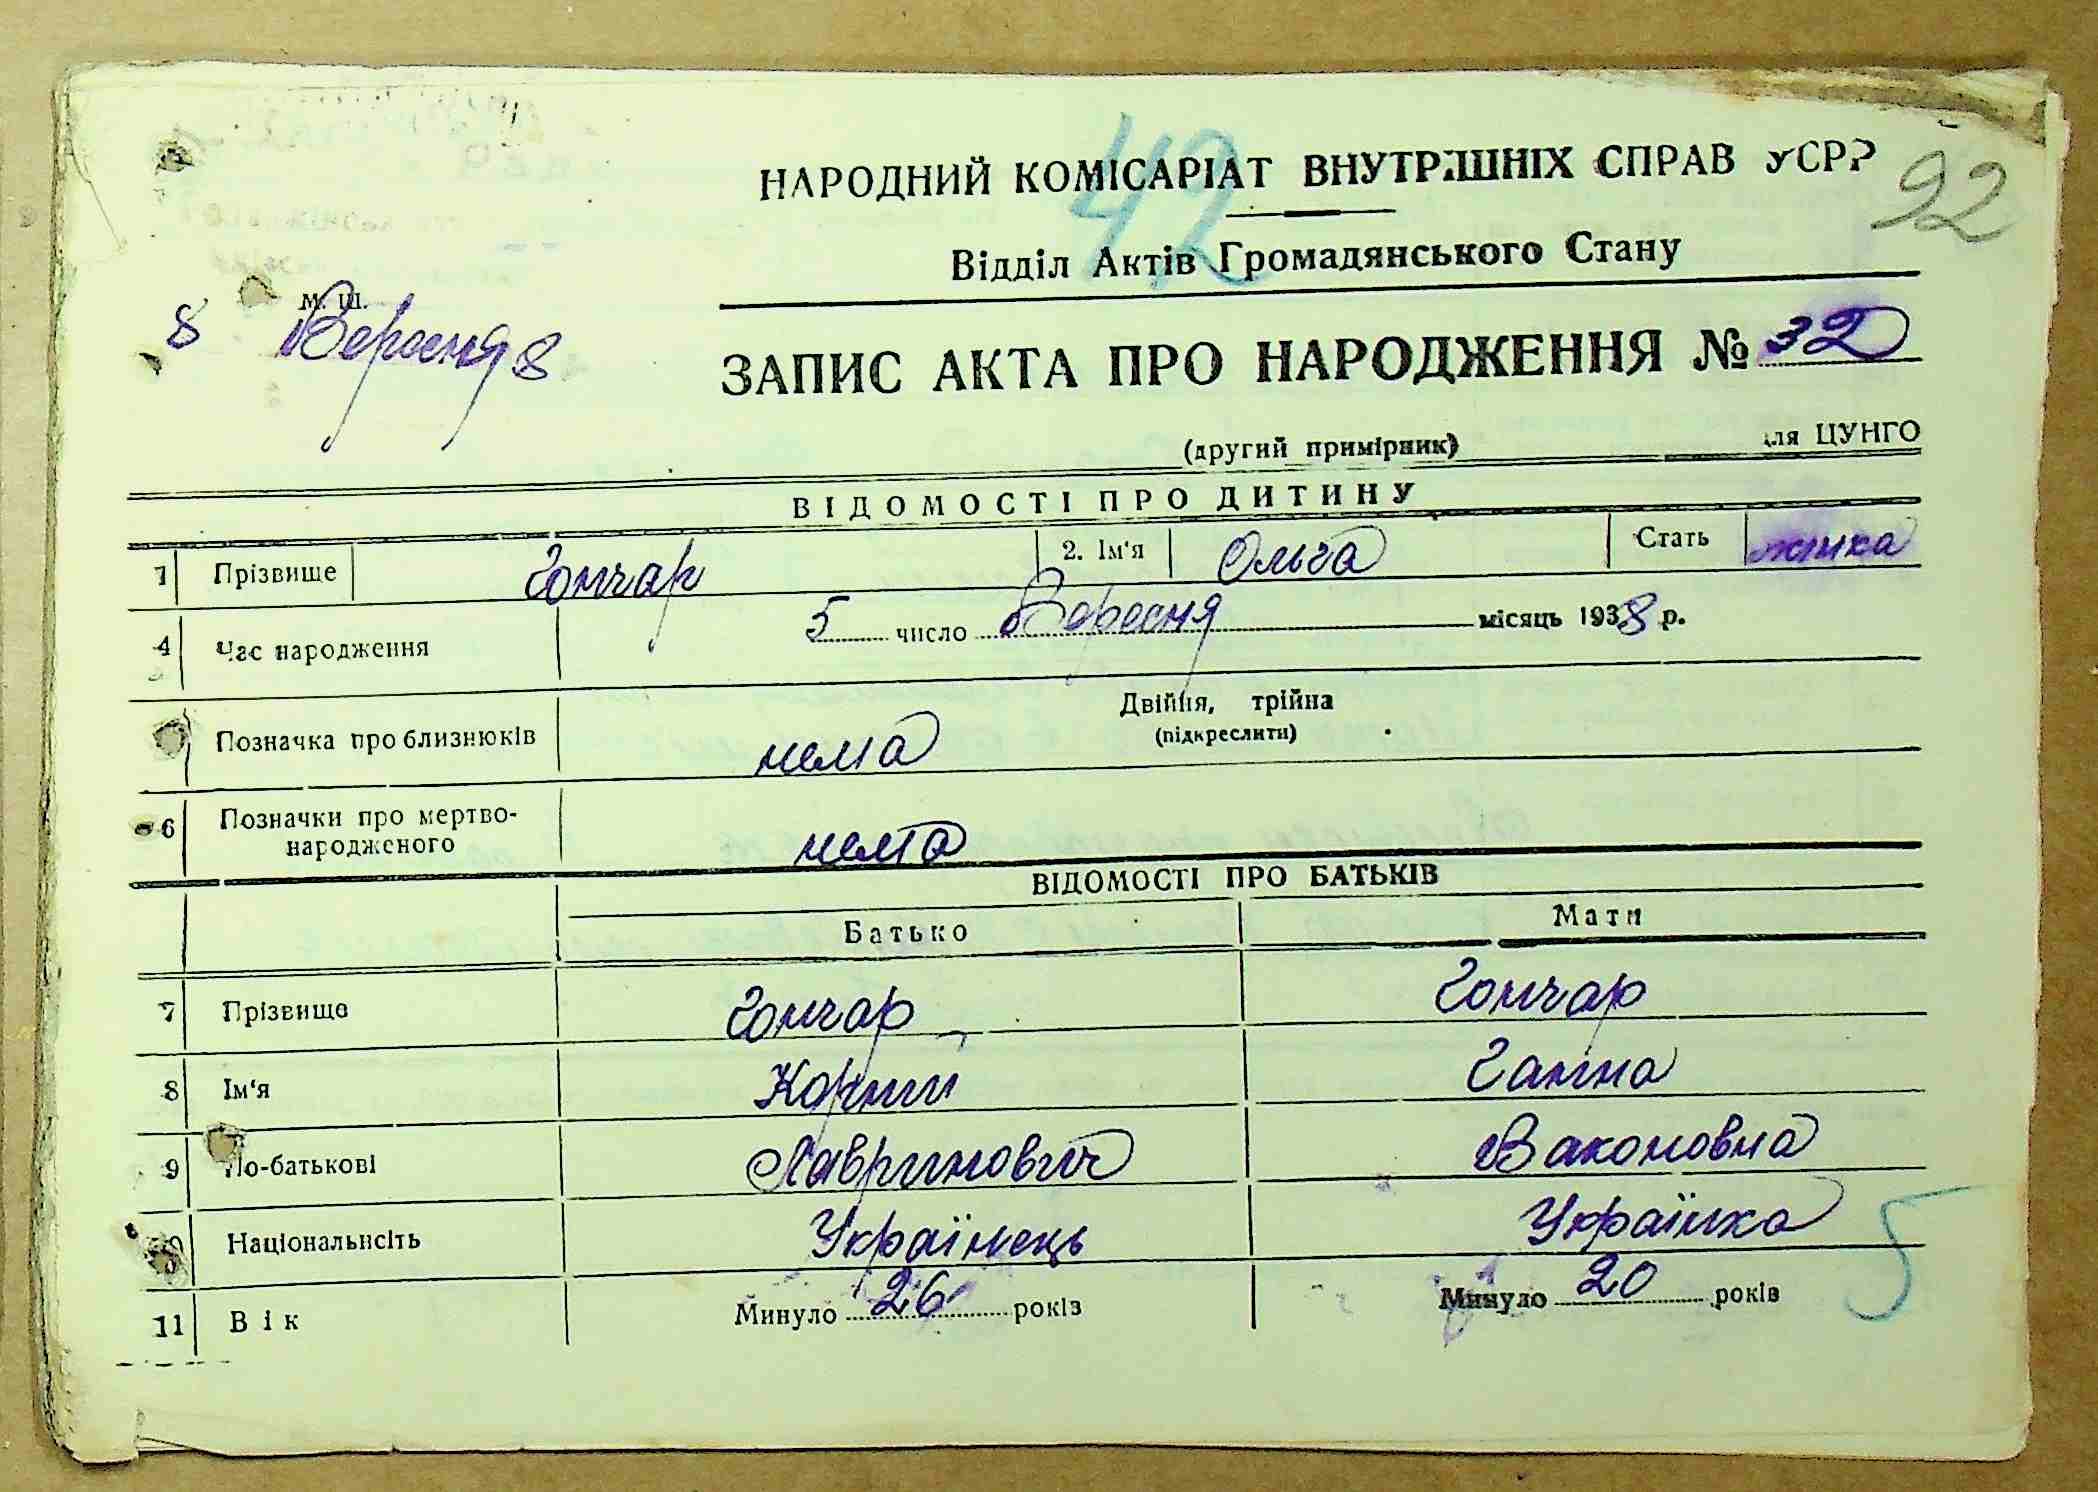 НАРОДНИЙ КОМІСАРІАТ ВНУТРІШНІХ СПРАВ УСРР
42
92
Відділ Актів Громадянського Стану
М. Ш.
8 Вересня 8
ЗАПИС АКТА ПРО НАРОДЖЕННЯ № 32
(другий примірник) для ЦУНГО
ВІДОМОСТІ ПРО ДИТИНУ
1 Прізвище Гончар 2. Ім'я Ольга Стать жінка
4 Час народження 5 число Вересня місяць 1938 р.
Позначка про близнюків нема Двійня, трійна
(підкреслити)
6 Позначки про мертво-
народженого нема
ВІДОМОСТІ ПРО БАТЬКІВ
Батько Мати
7 Прізвище Гончар Гончар
8 Ім'я Корній Ганна
9 По-батькові Лавринович Ваконовна
10 Національність Українець Українка
5
11 Вік Минуло 26 років Минуло 20 років